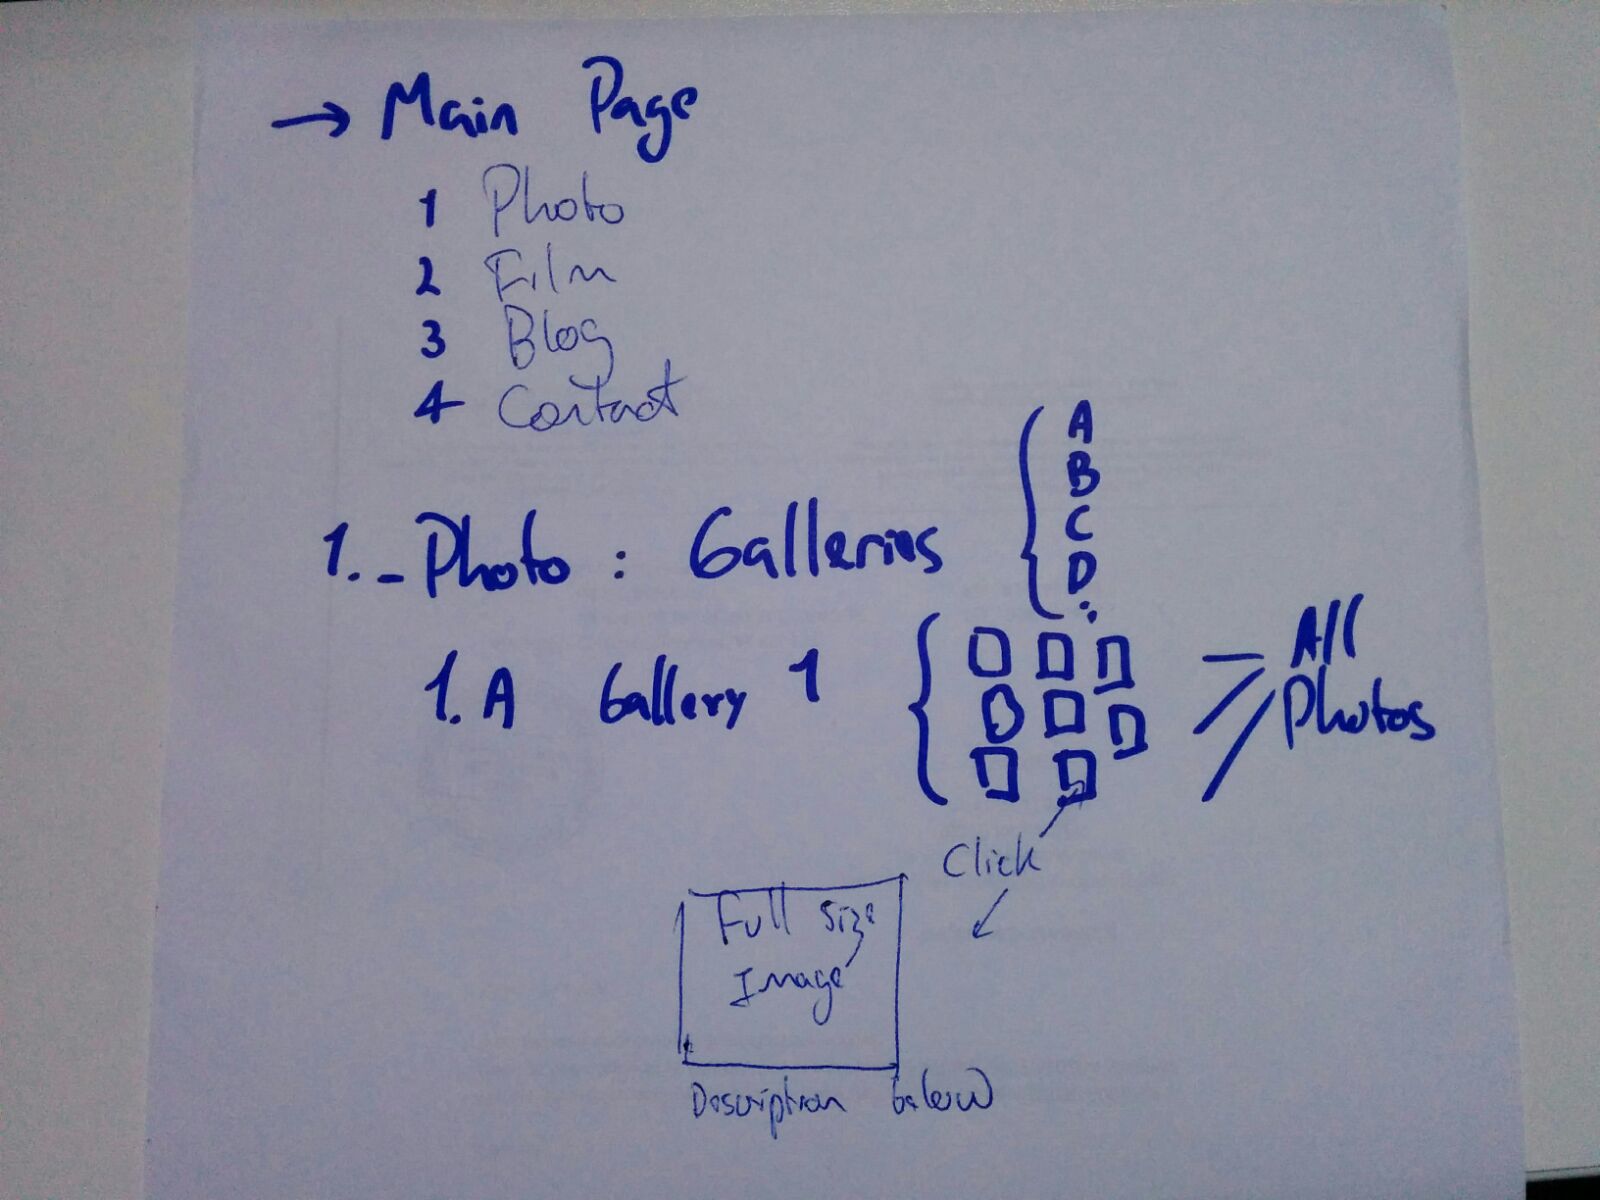 → Main Page
1 Photo
2 Film
3 Blog
4 Contact
1.- Photo : Galleries { A
B
C
D
:
1.A Gallery 1 {
All
Photos
Click
Full Size
Image
Description below